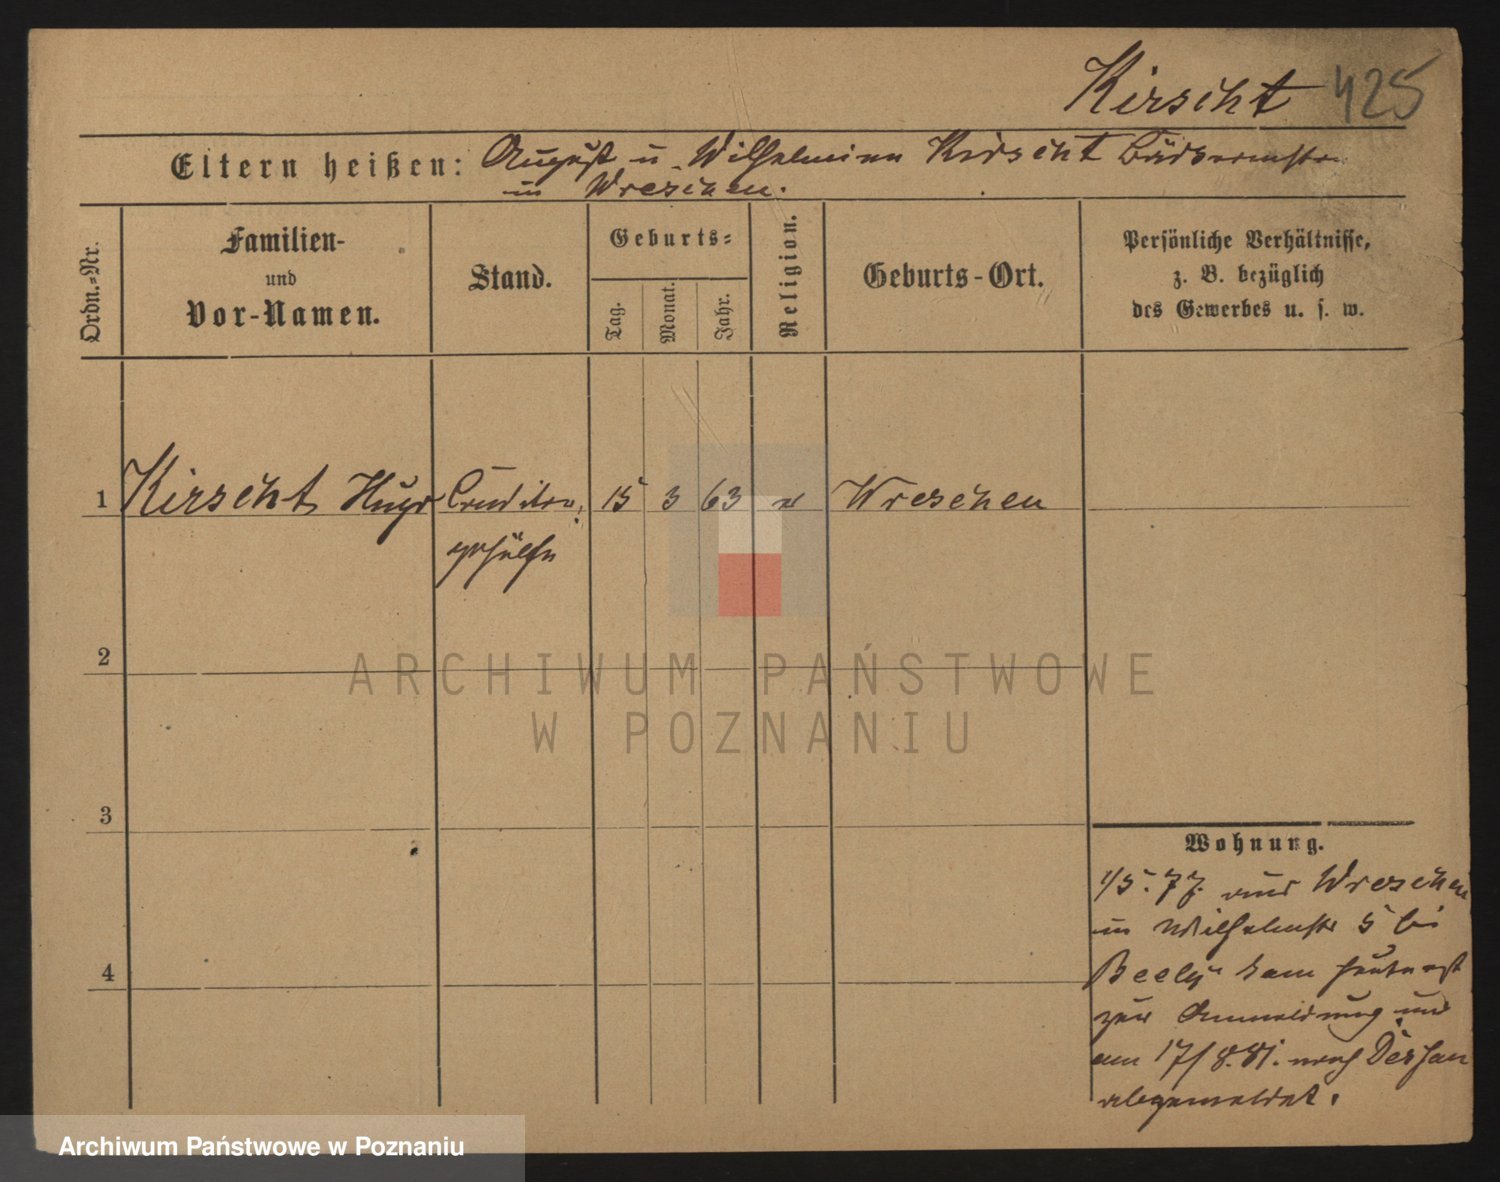 Kirscht 425
Eltern heißen: August u. Wilhelmine Kirscht Bäckermstr
in Wreschen.
Ordn.-Nr.
Familien-
und
Vor-Namen.
Stand.
Geburts-
Tag.
Monat.
Jahr.
Religion.
Geburts-Ort.
Persönliche Verhältnisse,
z. B. bezüglich
des Gewerbes u. s. w.
1 Kirscht Hugo Conditor- 15 3 63 Wreschen
gehülfe
2
3
4
Wohnung.
1/5. 77. aus Wreschen
in Wilhelmstr 5 bei
Beely kam heute erst
zur Anmeldung und
am 17/8.81. nach Dessau
abgemeldet.
ARCHIWUM PAŃSTWOWE
W POZNANIU
Archiwum Państwowe w Poznaniu